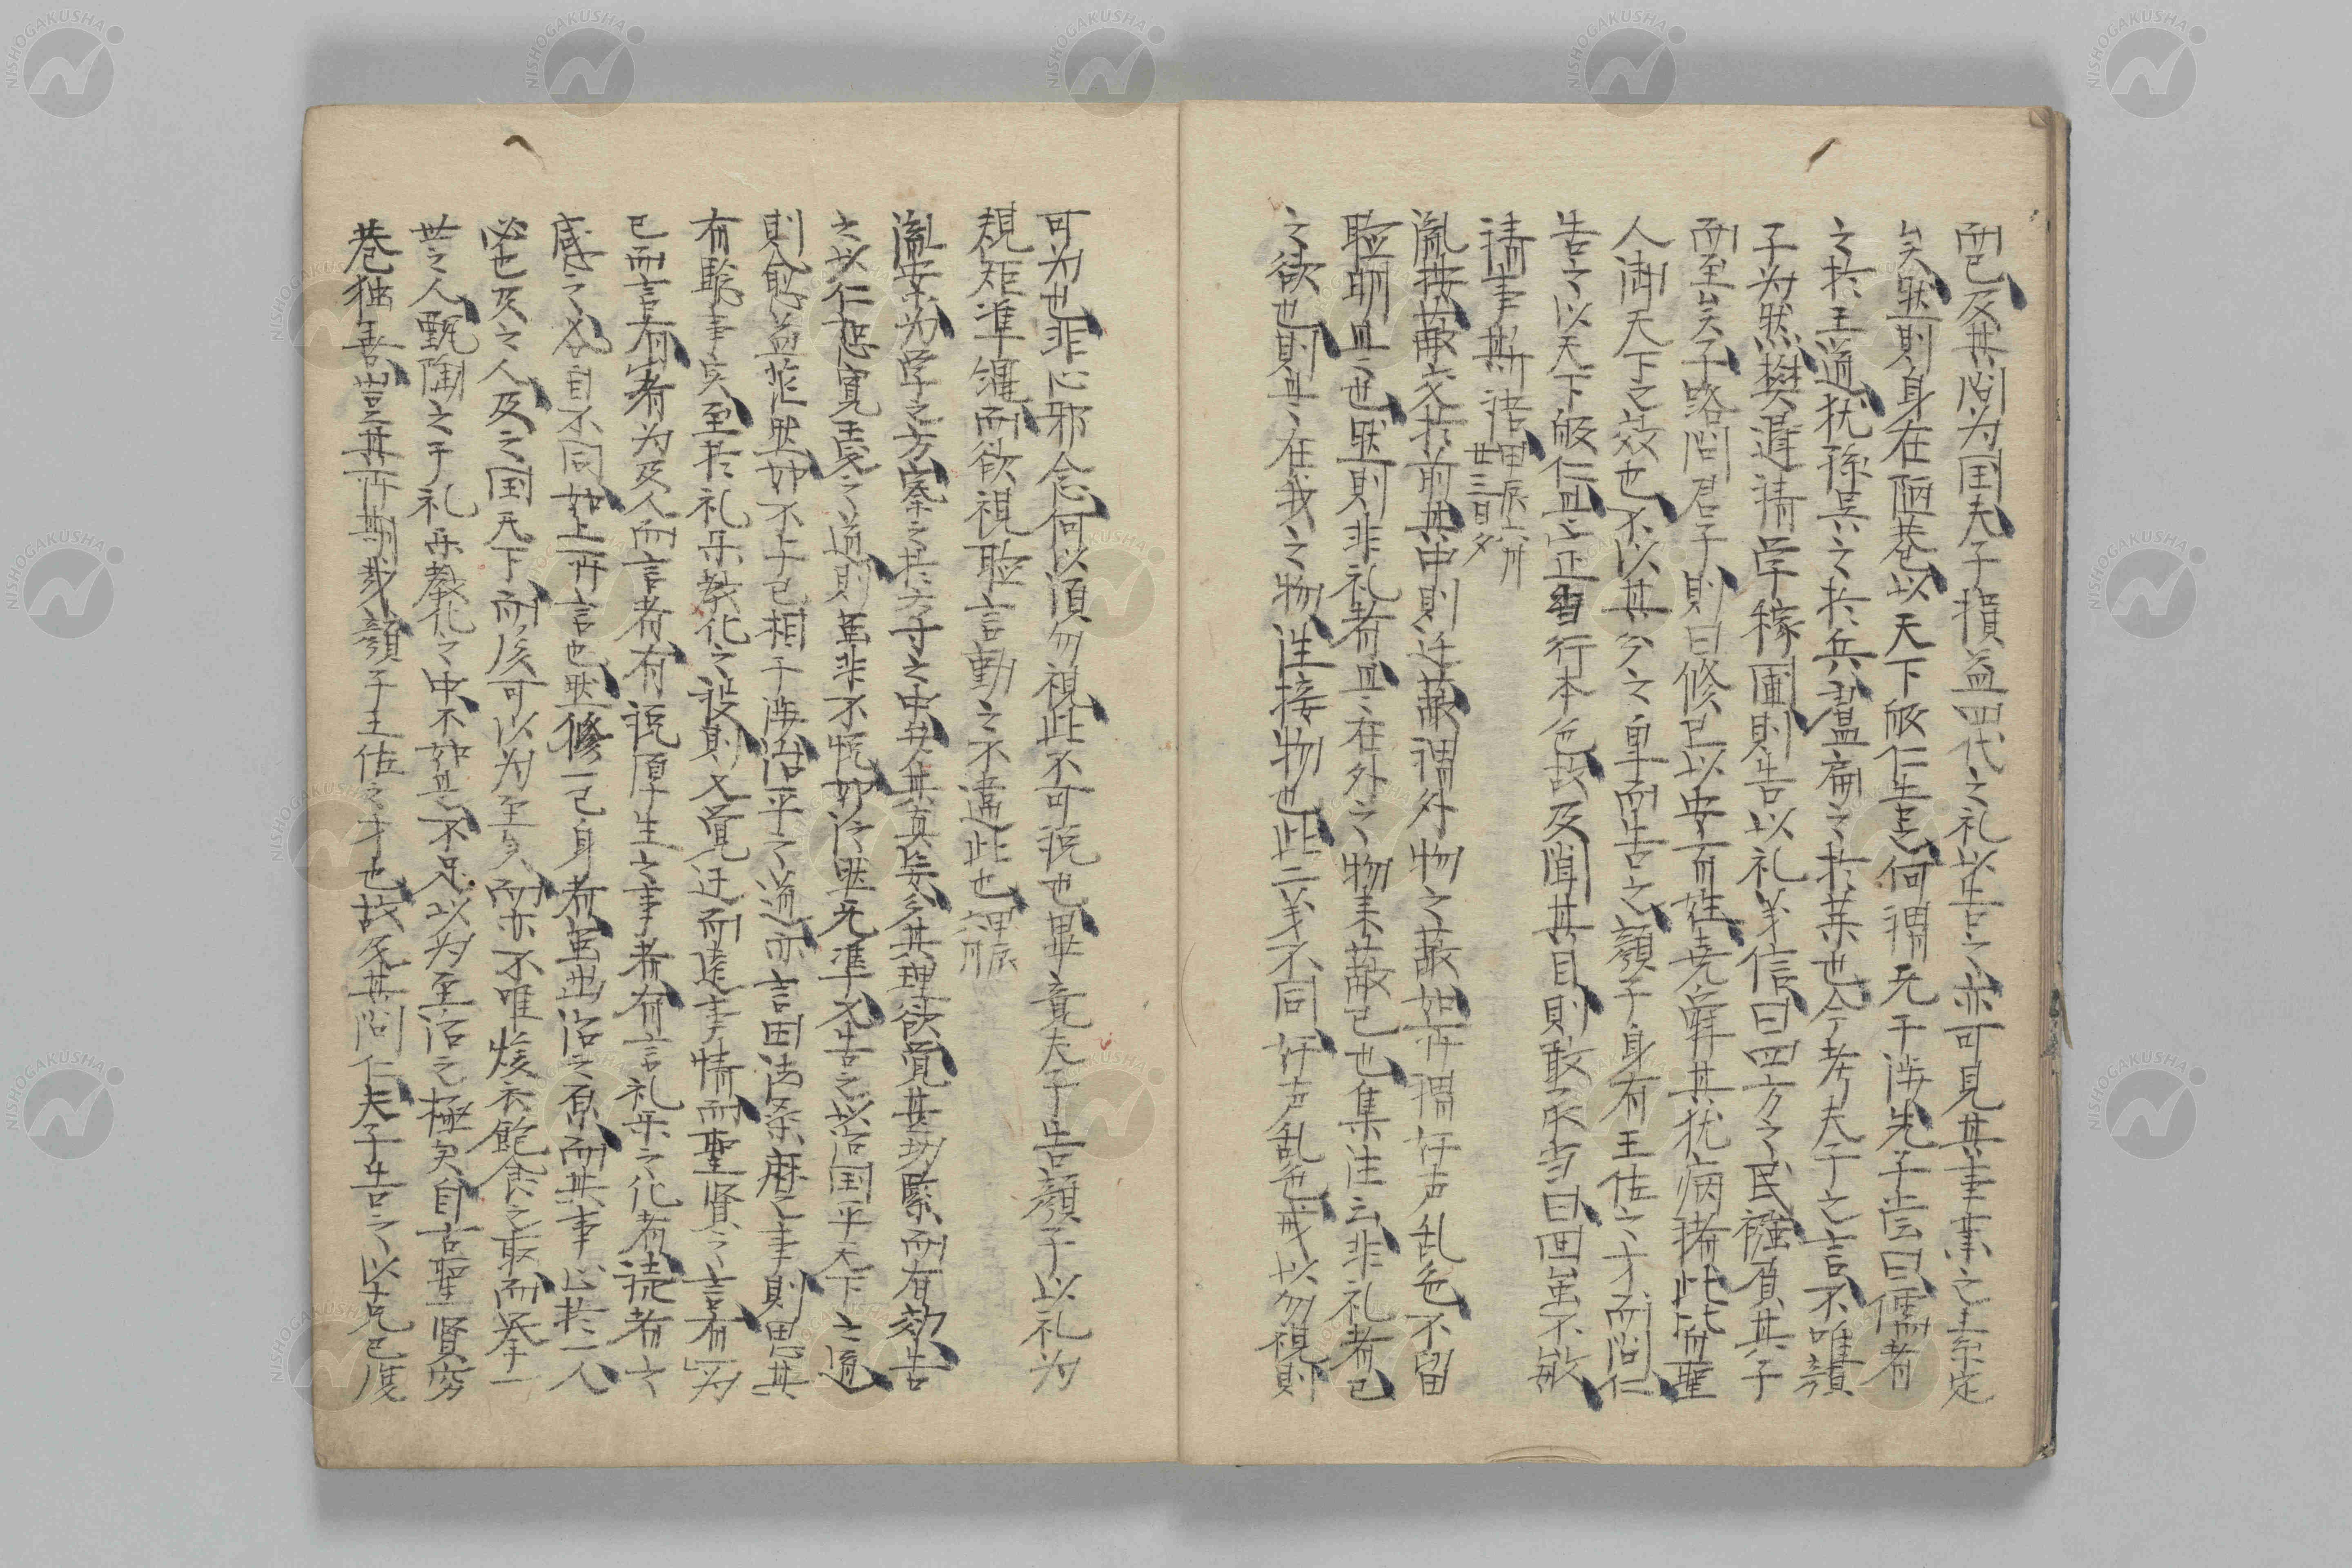 而已及其問为国夫子損益四代之礼以告之亦可見其事業之素定
矣然則身在陋巷以天下皈仁告之何謂无干海先子嵓曰儒者
之於王道犹孫呉之於兵盧扁之於薬也今考夫子之言不唯顔
子为然樊遅請学稼圃則告以礼义信曰四方之民襁負其子
而至矣子路問君子則曰修己以安百姓尭舜其犹病諸此皆聖
人御天下之效也不以其分之卑而告之顔子身有王佐之才而問仁
告之以天下皈仁且是正當行本色故及聞其目則敢承当曰回虽不敏
請事斯语 甲辰六月
廿三日夕
胤按蔽交於前其中則迁蔽謂外物之蔽如所謂奸声乱色不留
聡明是也然則非礼者是在外之物来蔽己也集注云非礼者己
之欲也則是在我之物往接物也此二义不同奸声乱色戒以勿視則
可为也非心邪念何以須勿視此不可説也畢竟夫子告顔子以礼为
規矩準縄而欲視聡言動之不違此也 甲辰
胤按为学之方察之於方寸之中其真妄分其理欲覚其功緊而有效告
之以仁恕寛柔之道則虽非不悦如泛然无準又告之以治国平天下之道
則愈益茫然如不干己相干海治平之道而言田法桑麻之事則思其
有眇事矣至於礼乐教化之設則又覚迂而遠事情而聖賢之言有为
己而言有者为及人而言者有説厚生之事者有言礼乐之化者徒者之
感之各自不同如上所言也然修一己身者虽出治之原而其事止於一人
必也及之人及之国天下而後可以为至矣而亦不唯煖衣飽食之取而挙一
世之人甄陶之于礼乐教化之中不如是不足以为至治之極矣自古聖賢窮
巷独善豈其所期哉顔子王佐之才也故於其問仁夫子告之以克己復